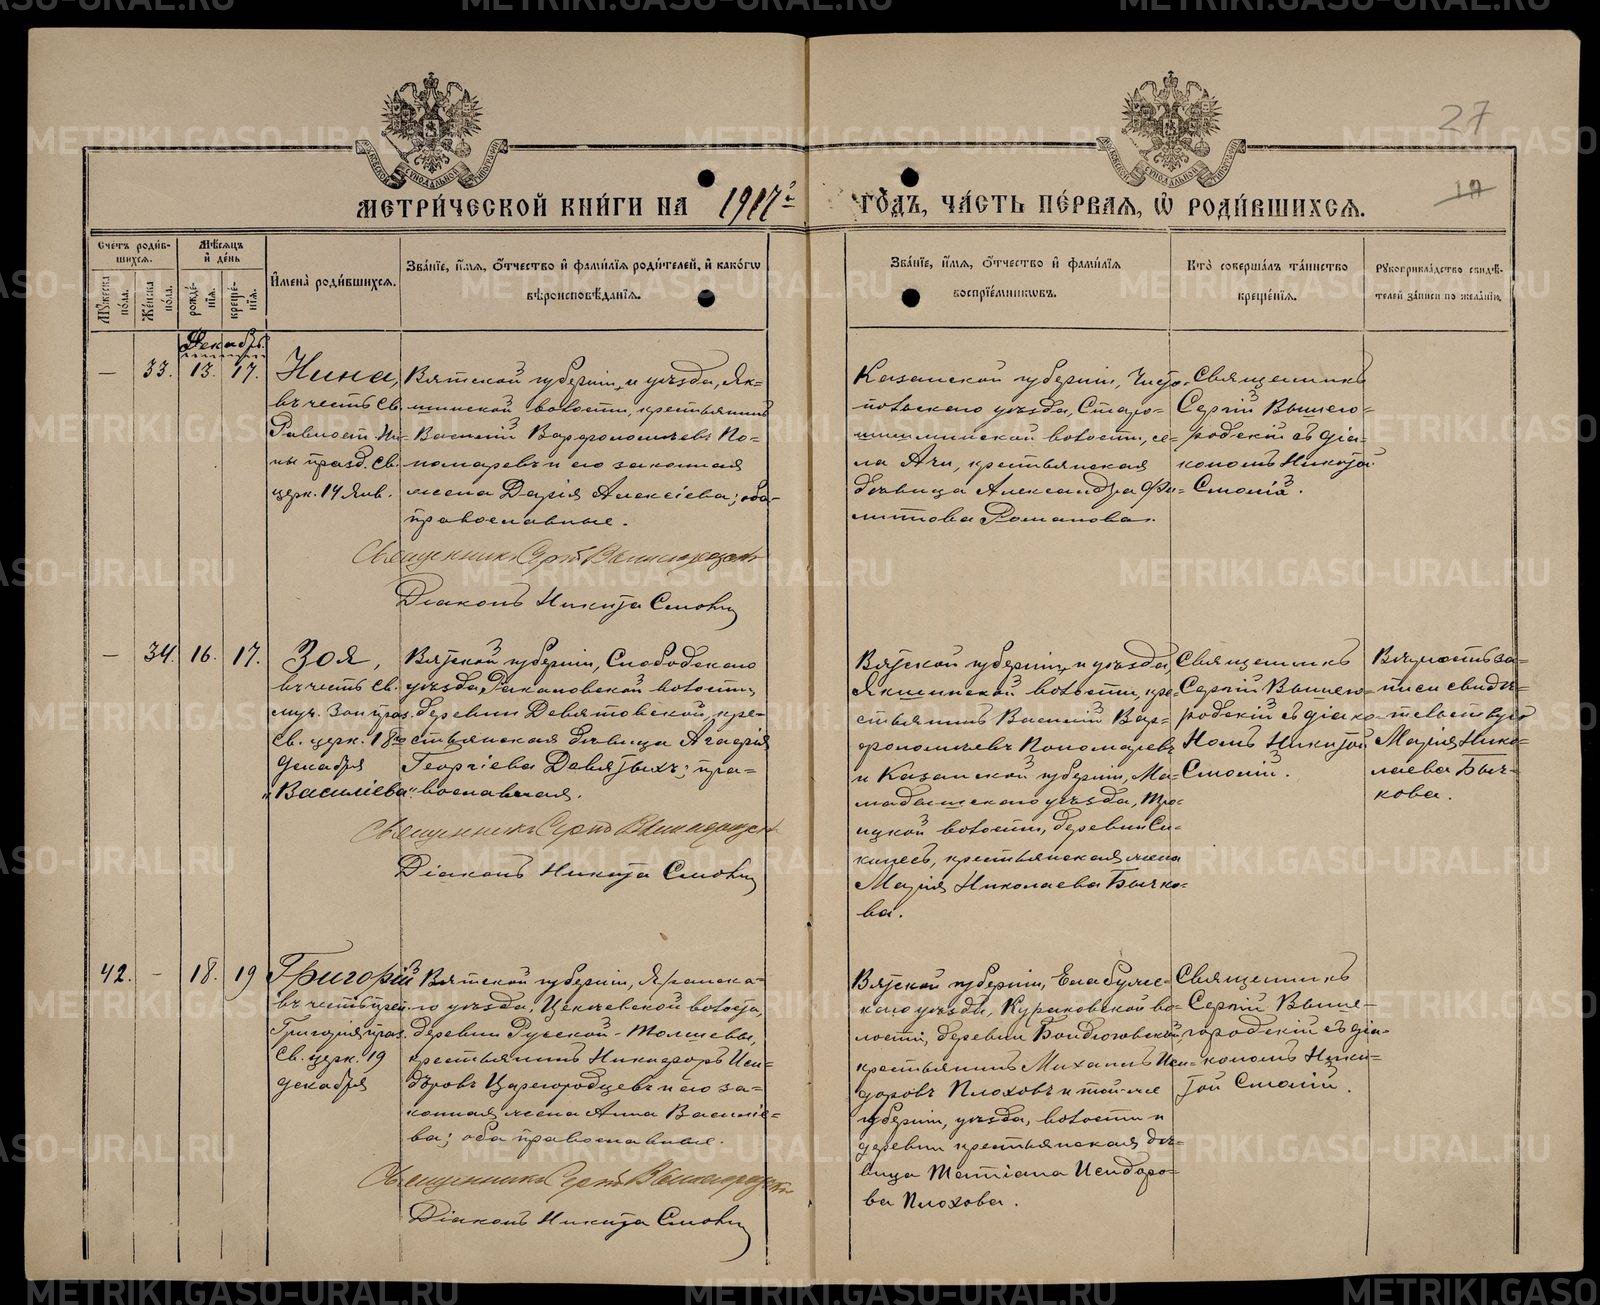 27
МЕТРИ́ЧЕСКОЙ КНИ́ГИ НА 1917 г. ГО́ДЪ, ЧА́СТЬ ПЕ́РВАЯ, Ѡ РОДИ́ВШИХСЯ.
Счетъ роди́вшихся.
Мѣсяцъ и де́нь
Мꙋжеска по́ла.
Же́нска по́ла.
рожде́нїя.
креще́нїя.
Имена̀ роди́вшихся.
Зва́нїе, и́мя, о́тчество и фами́лїя роди́телей, и како́гѡ вѣроисповѣ́данїя.
Зва́нїе, и́мя, о́тчество и фами́лїя воспрїе́мникѡвъ.
Кто̀ соверша́лъ та́инство креще́нїя.
Рꙋкоприкла́дство свидѣ́телей за́писи по жела́нїю.
Декабрь.
— 33. 13. 17.
Нина,
въ честь св.
Равноап. Ни-
ны празд. св.
церк. 14 Янв.
Вятской губерніи и уѣзда, Як-
шинской волости, крестьянинъ
Василій Варѳоломеевъ По-
номаревъ и его законная
жена Дарія Алексіева; оба
православные.
Священникъ Сергій Вышегородскій
Діаконъ Никита Смовж
Казанской губерніи, Чисто-
польскаго уѣзда, Старо-
шешминской волости, се-
ла Ачи, крестьянская
дѣвица Александра Фи-
липпова Романова.
Священникъ
Сергій Вышего-
родскій съ діа-
кономъ Никитой
— 34. 16. 17.
Зоя,
въ честь св.
муч. Зои праз.
св. церк. 18го
декабря
„Василіева“
Вятской губерніи, Слободскаго
уѣзда, волости,
деревни Девятовской, кре-
стьянская дѣвица Агафія
Георгіева Девятыхъ; пра-
вославная.
Священникъ Сергій Вышегородскій
Діаконъ Никита
Вятской губерніи и уѣзда,
Якшинской волости, кре-
стьянинъ Василій Вар-
ѳоломеевъ Пономаревъ
и Казанской губерніи, Ма-
мадышскаго уѣзда,
волости, деревни
крестьянская жена
Марія Николаева Бычко-
ва.
Священникъ
Сергій Вышего-
родскій съ діако-
номъ Никитой
Вѣрность за-
писи свидѣ-
тельствуетъ
Марія Нико-
лаева Быч-
кова.
42. – 18. 19
Григорій
въ честь преп.
Григорія праз.
св. церк. 19
декабря
Вятской губерніи, Яранска-
го уѣзда, волости,
деревни Русской-Толшевы,
крестьянинъ Никифоръ Иси-
доровъ Царегородцевъ и его за-
конная жена Анна Василіе-
ва; оба православные.
Священникъ Сергій Вышегородскій
Діаконъ Никита
Вятской губерніи, Елабужс-
каго уѣзда, Кураковской во-
лости, деревни Бондюговской
крестьянинъ Михаилъ Иси-
доровъ Плоховъ и той-же
губерніи, уѣзда, волости и
деревни крестьянская дѣ-
вица Татіана Исидоро-
ва Плохова.
Священникъ
Сергій Выше-
городскій съ діа-
кономъ Ники-
той
METRIKI.GASO-URAL.RU